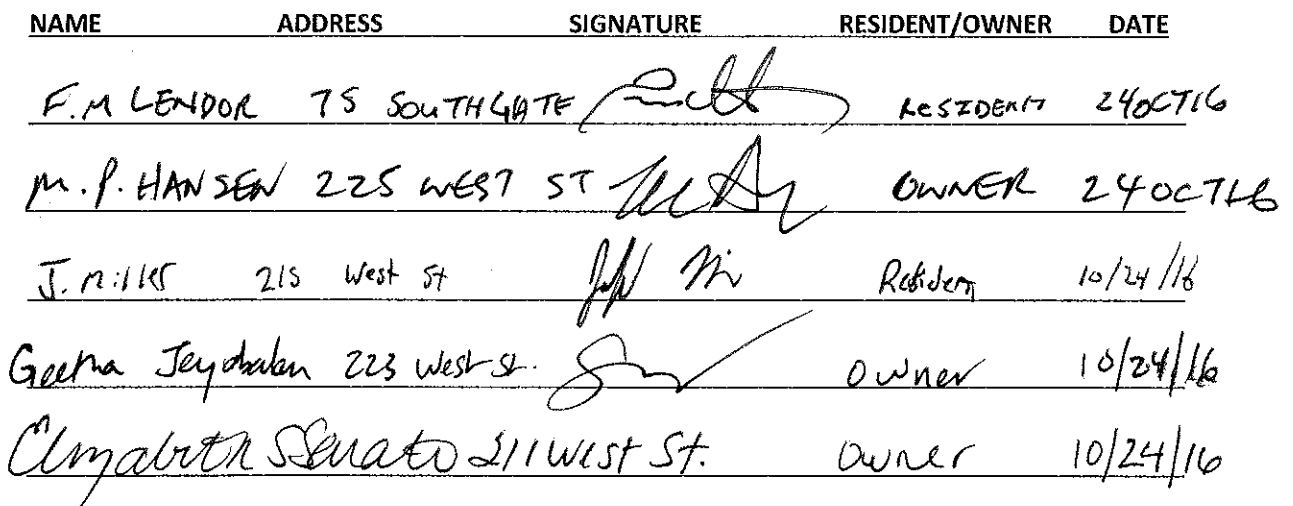 NAME ADDRESS SIGNATURE RESIDENT/OWNER DATE
F.M LENDOR 75 SOUTHGATE RESIDENT 24OCT16
M.P. HANSEN 225 WEST ST OWNER 24OCT16
J. Miller 215 West St Resident 10/24/16
Geetha Jeyabalan 223 West St. Owner 10/24/16
Elizabeth Senato 211 West St. Owner 10/24/16